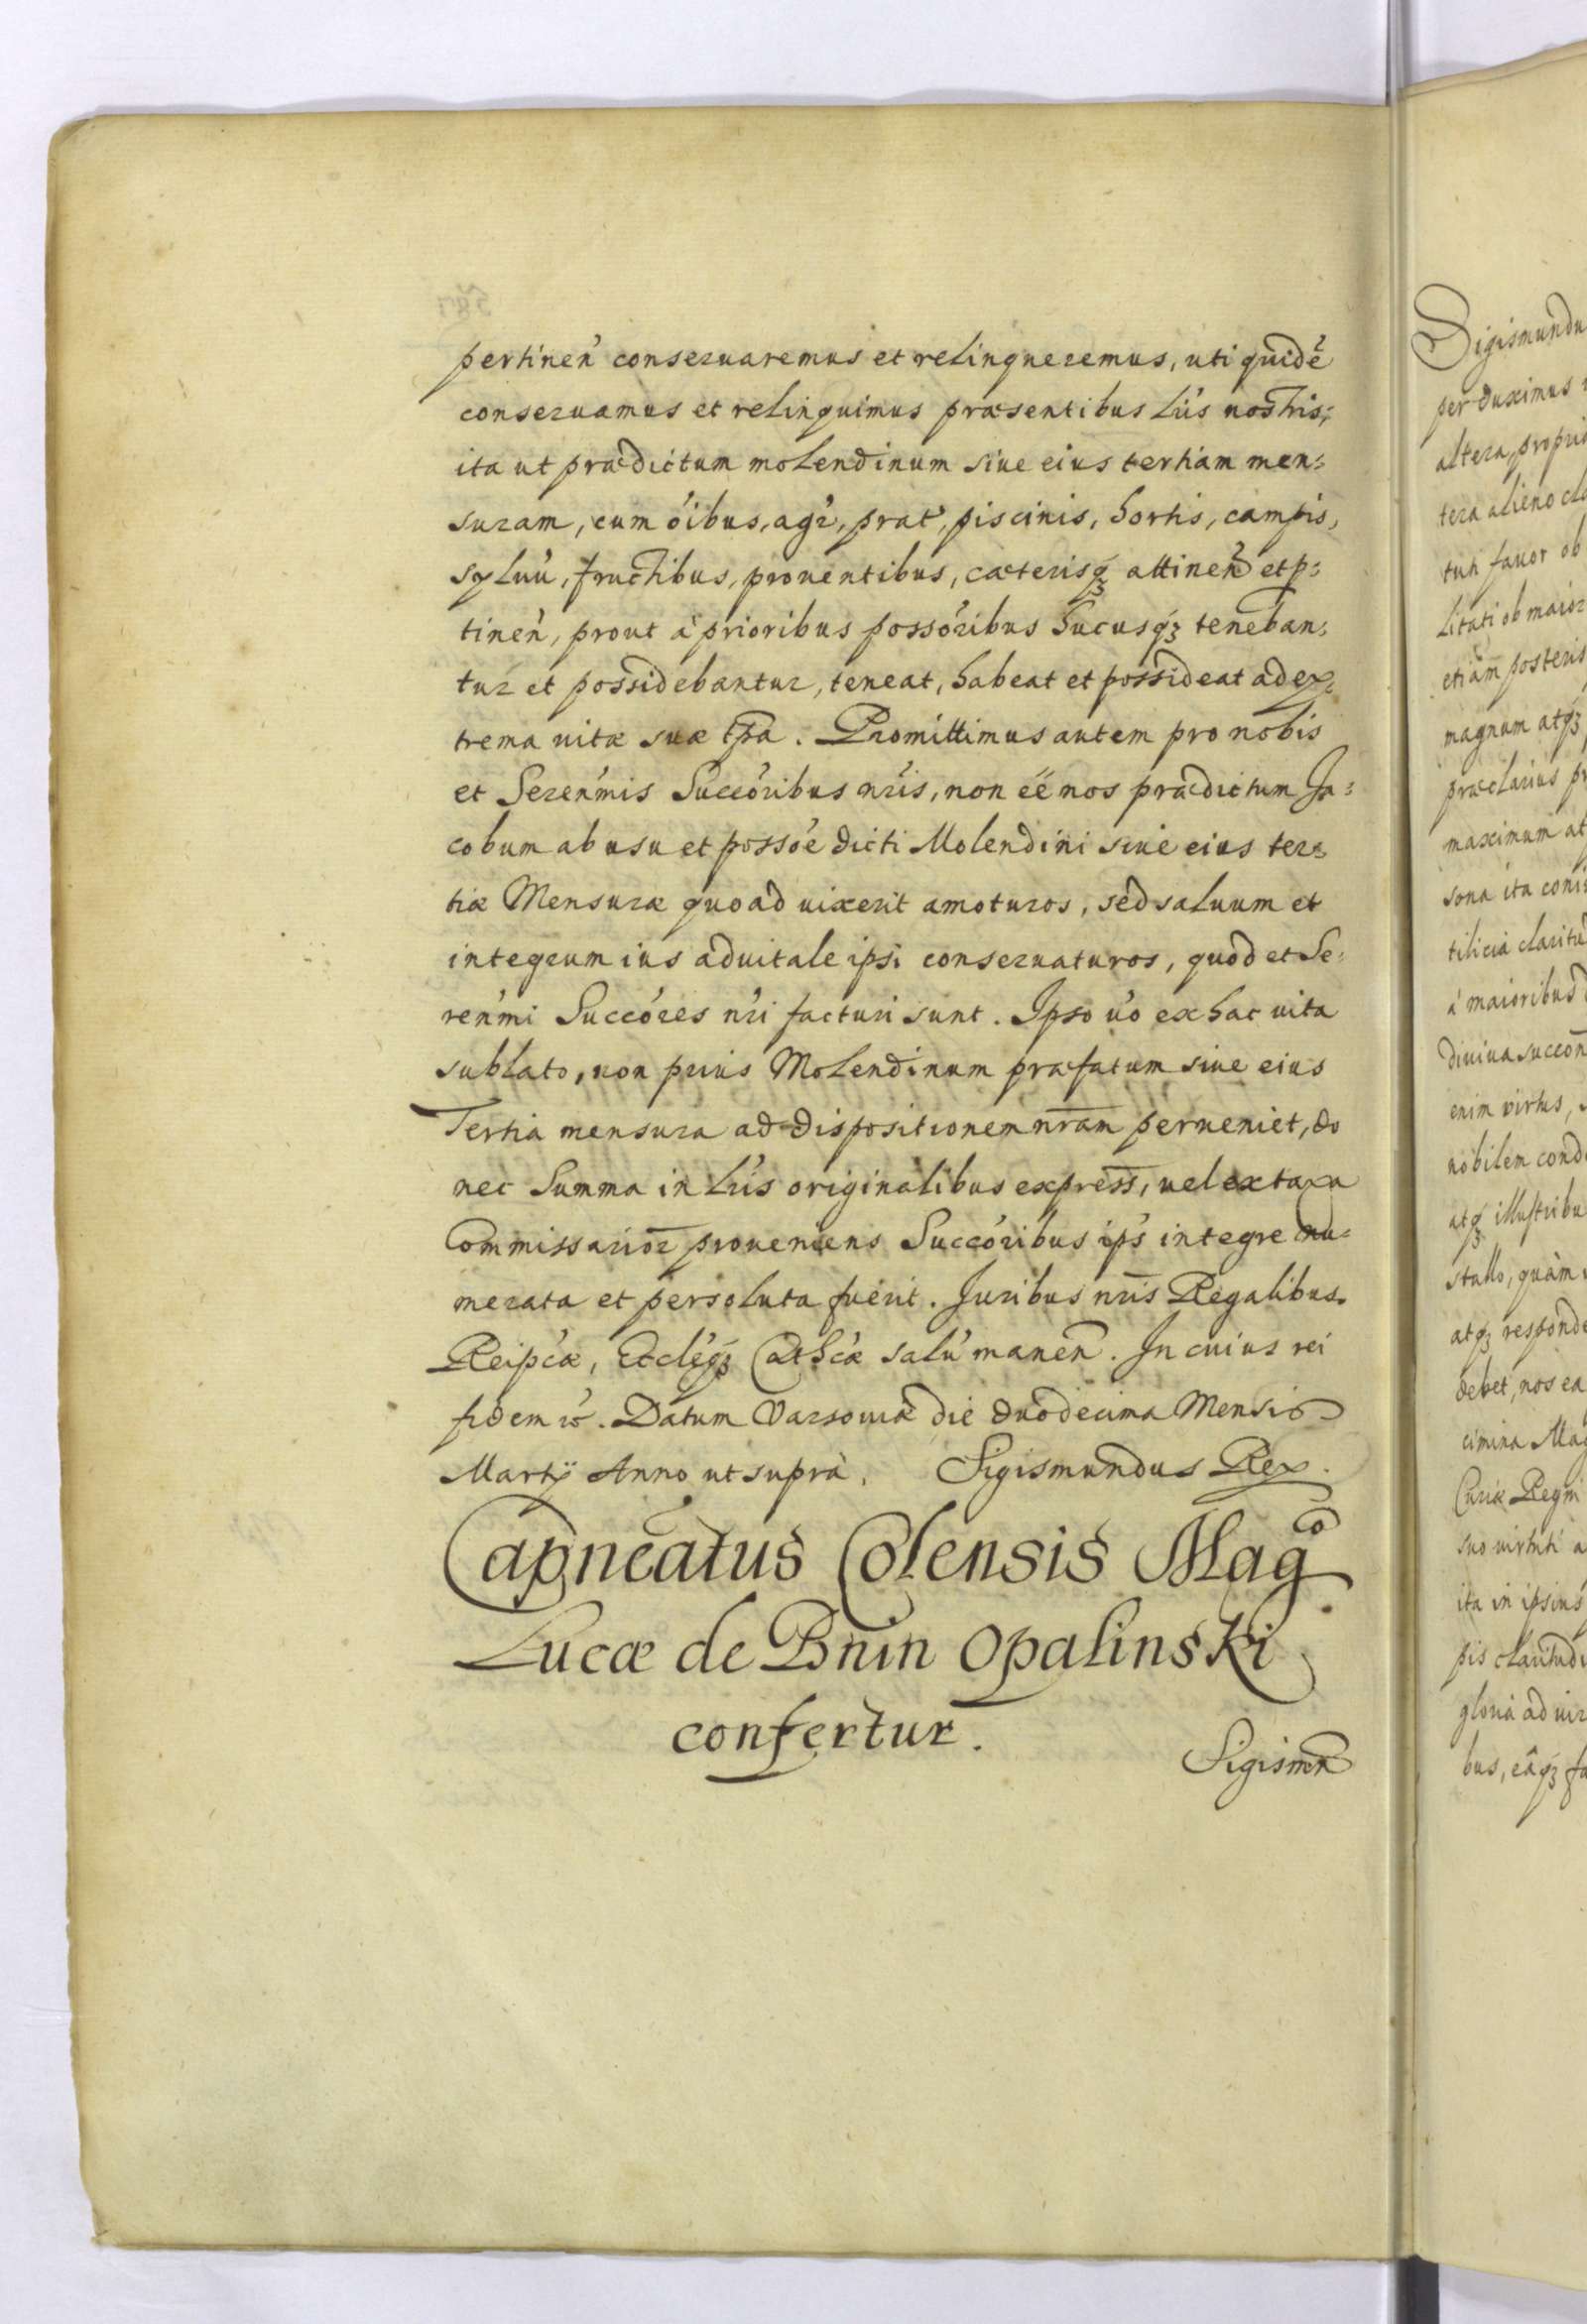 pertinen̄ conseruaremus et relinqueremus, uti quidē
conseruamus et relinquimus præsentibus Lr̄is nostris,
ita ut prædictum molendinum siue eius tertiam men:
suram, cum ōibus, agr̄, prat̄, piscinis, hortis, campis,
syluū, fructibus, prouentibus, cæterisq3 attinen̄ et p:
tinen̄, prout à prioribus possōribus hucusq3 teneban:
tur et possidebantur, teneat, habeat et possideat ad ex:
trema uitæ suæ tp̄a. Promittimus autem pro nobis
et Seren̄mis Succōribus nr̄is, non eē nos prædictum Ja:
cobum ab usu et possoē dicti Molendini siue eius ter:
tiæ Mensuræ quoad uixerit amoturos, sed saluum et
integrum ius aduitale ipsi conseruaturos, quod et Se:
ren̄mi Succōres nr̄i facturi sunt. Ipso u̇o ex hac uita
sublato, non prius Molendinum præfatum siue eius
Tertia mensura ad dispositionem nr̄am perueniet, do
nec Summa in Lr̄is originalibus express̄, uel ex taxa
Commissarior̄ proueniens Succōribus ips̄ integre nu:
merata et persoluta fuerit. Juribus nr̄is Regalibus.
Reipc̄æ, Ecclēq3 Cathc̄æ salū manen̄. In cuius rei
fidem
Datum Varsouiæ die duodecima Mensis
Martÿ Anno ut suprà. Sigismundus Rex.
Capneātus Colensis Magco
Lucæ de Bnin Opalinski
confertur.
Sigismn̄
Sigismundu
per duximus
altera, proprio
tera alieno cla
tuti fauor ob
Litati ob maior
etiam posteris
magnum atq3
præclarius pr
maximum at
sona ita coni
tilicia claritu
à maioribus
diuina succon̄
enim virtus,
nobilem cond
atq3 illustribu
stallo, quàm
atq3 responde
debet, nos ea
cimina Mag
Curiæ Regni
suo virtuti a
ita in ipsius
pis claritudi
gloria ad uir
bus, eâq3 fa